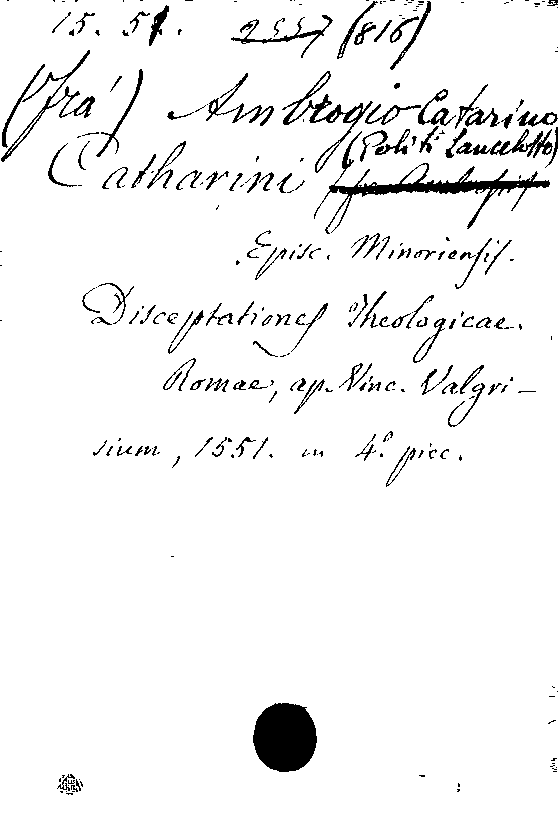 15. 51. 2557 (816)
(Frà) Ambrogio Catarino
(Politi Lancelotto)
Catharini
Episc. Minoriensis.
Disceptationes Theologicae.
Romae, ap. Vinc. Valgri-
sium, 1551. in 4.º picc.